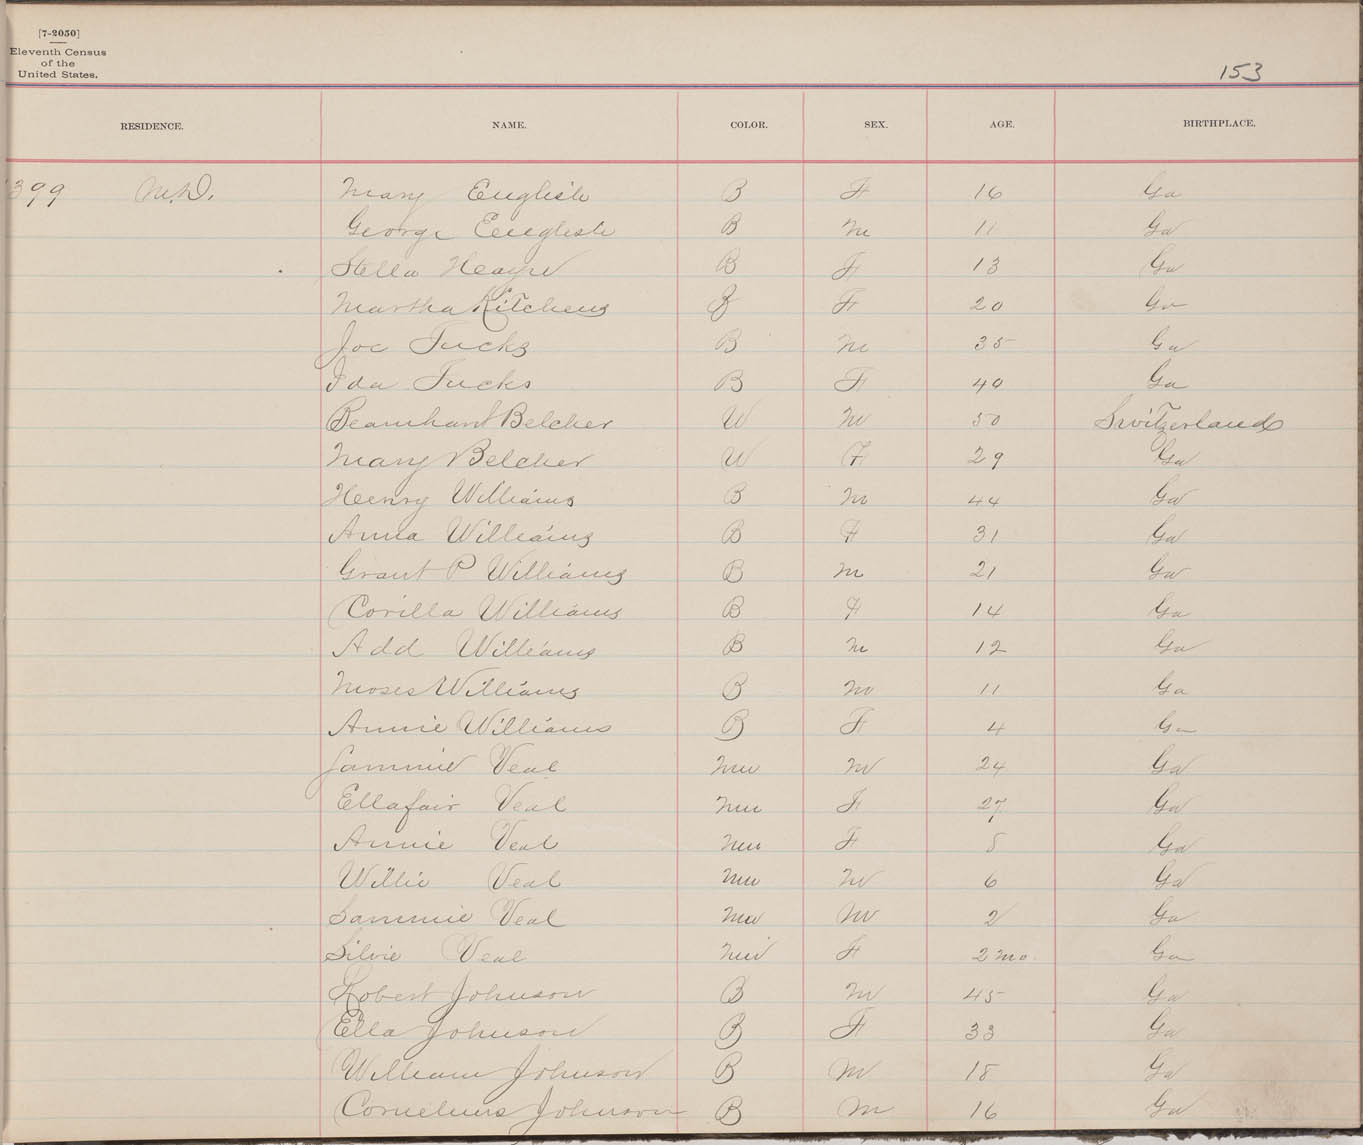 [7-2050]
Eleventh Census
of the
United States.
153
RESIDENCE. NAME. COLOR. SEX. AGE. BIRTHPLACE.
399 M.D. Mary English B F 16 Ga
George English B M 11 Ga
Stella B F 13 Ga
Martha Kitchens B F 20 Ga
Joe Tucks B M 35 Ga
Ida Tucks B F 40 Ga
Belcher W M 50 Switzerland
Mary Belcher W F 29 Ga
Henry Williams B M 44 Ga
Anna Williams B F 31 Ga
Grant P Williams B M 21 Ga
Corilla Williams B F 14 Ga
Add Williams B M 12 Ga
Moses Williams B M 11 Ga
Annie Williams B F 4 Ga
Sammie Veal Mu M 24 Ga
Ellafair Veal Mu F 27 Ga
Annie Veal Mu F 8 Ga
Willie Veal Mu M 6 Ga
Sammie Veal Mu M 2 Ga
Silvie Veal Mu F 2 mo. Ga
Robert Johnson B M 45 Ga
Ella Johnson B F 33 Ga
William Johnson B M 18 Ga
Cornelius Johnson B M 16 Ga